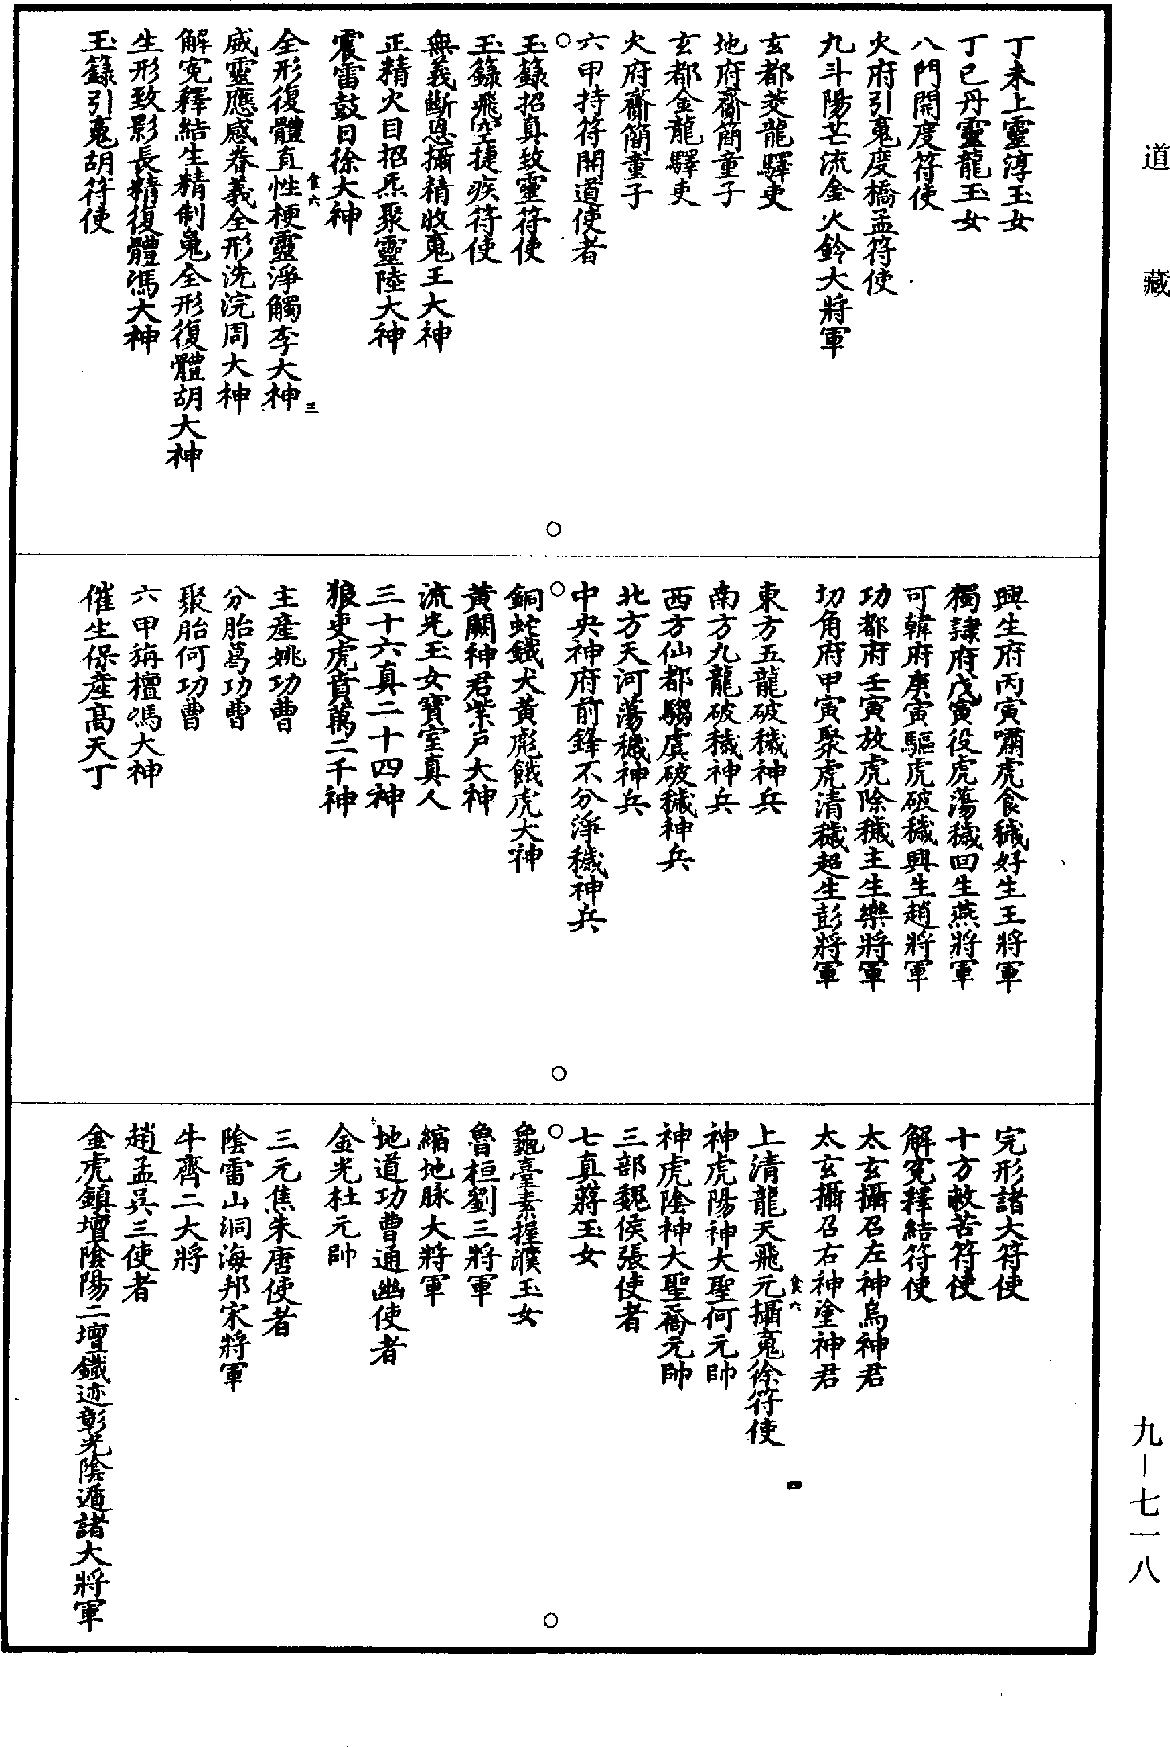 道藏
丁未上靈淳玉女
丁巳丹靈龍玉女
八門開度符使
火府引䰟度橋孟符使
九斗陽芒流金火鈴大將軍
玄都茭龍驛吏
地府齋簡童子
玄都金龍驛吏
火府齋簡童子
六甲持符開道使者
○
玉籙招真致靈符使
玉籙飛空捷疾符使
無義斷恩攝精收䰟王大神
正精火目招炁聚靈陸大神
震雷鼓日徐大神
食六 三
全形復體直性梗靈淨觸李大神
威靈應感眷義全形洗浣周大神
解冤釋結生精制䰟全形復體胡大神
生形致影長精復體馮大神
玉籙引䰟胡符使
○
興生府丙寅嘯虎食穢好生王將軍
獨隸府戊寅役虎蕩穢回生燕將軍
可韓府庚寅驅虎破穢興生趙將軍
功都府壬寅放虎除穢主生樂將軍
切角府甲寅聚虎清穢超生彭將軍
東方五龍破穢神兵
南方九龍破穢神兵
西方仙都騶虞破穢神兵
北方天河蕩穢神兵
中央神府前鋒不分淨穢神兵
○
銅蛇鐵犬黃彪餓虎大神
黃闕神君紫戶大神
流光玉女寶室真人
三十六真二十四神
狼吏虎賁萬二千神
主產姚功曹
分胎葛功曹
聚胎何功曹
六甲旃檀馮大神
催生保產高天丁
○
完形諸大符使
十方救苦符使
解冤釋結符使
太玄攝召左神烏神君
太玄攝召右神塗神君
食六 四
上清龍天飛元攝䰟徐符使
神虎陽神大聖何元帥
神虎陰神大聖喬元帥
三部魏侯張使者
七真蔣玉女
○
龜臺素握濮玉女
魯桓劉三將軍
縮地脉大將軍
地道功曹通幽使者
金光杜元帥
三元焦朱唐使者
陰雷山洞海邦宋將軍
牛齊二大將
趙孟吳三使者
金虎鎮壇陰陽二壇鐵迹彰光陰遁諸大將軍
○
九—七一八